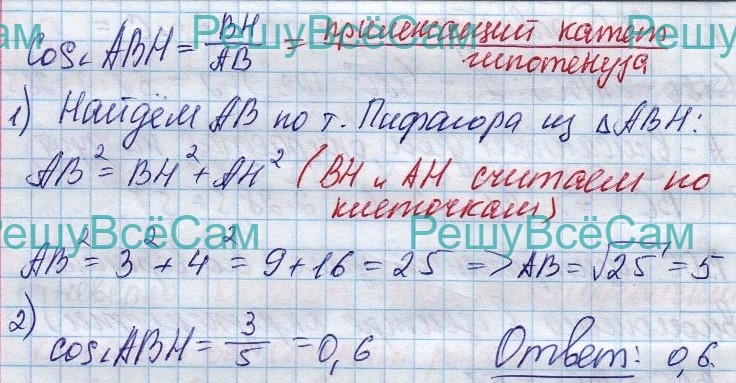 cos∠ABH = BH/AB = прилежащий катет/гипотенуза
1) Найдём AB по т. Пифагора из △ABH:
AB² = BH² + AH² (BH и AH считаем по
клеточкам)
РешуВсёСам РешуВсёСам
AB² = 3² + 4² = 9 + 16 = 25 => AB = √25 = 5
2) cos∠ABH = 3/5 = 0,6 Ответ: 0,6.